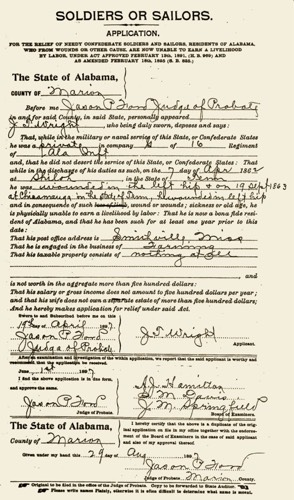 SOLDIERS OR SAILORS.
APPLICATION.
FOR THE RELIEF OF NEEDY CONFEDERATE SOLDIERS AND SAILORS, RESIDENTS OF ALABAMA,
WHO FROM WOUNDS OR OTHER CAUSE, ARE NOW UNABLE TO EARN A LIVELIHOOD
BY LABOR, UNDER ACT APPROVED FEBRUARY 13th, 1891, (H. B. 969;) AND
AS AMENDED FEBRUARY 18th, 1895 (S. B. 525.)
The State of Alabama,
COUNTY OF Marion
Before me Jason P Ford Judge of Probate
in and for said County, in said State, personally appeared
J T Wright who being duly sworn, deposes and says:
That, while in the military or naval service of this State, or Confederate States
he was a private in company G of 16 Regiment
of Ala Inft
and, that he did not desert the service of this State, or Confederate States: That
while in the discharge of his duties as such, on the 7 day of Apr 1862
at Shiloh in the State of Tenn
he was wounded in the left hip & on 19 Sept 1863
at Chicamauga in the State of Tenn, wounded in left hip
and in consequence of such wound or wounds; sickness or old age, he
is physically unable to earn a livelihood by labor: That he is now a bona fide resi-
dent of Alabama, and that he has been such for at least one year prior to this
date:
That his post office address is Smithville Miss
That he is engaged in the business of Farming
That his taxable property consists of nothing at all
and is
not worth in the aggregate more than five hundred dollars:
That his salary or gross income does not amount to five hundred dollars per year;
and that his wife does not own a separate estate of more than five hundred dollars:
And he hereby makes application for relief under said Act.
Sworn to and Subscribed before me on this
19th day of April 1897
Jason P Ford
Judge of Probate
J T Wright
Applicant.
After an examination and investigation of the within application, we report that the said applicant is worthy and
that the accompanying application is just.
June 1st 1897
I find the above application is in due form,
and approve the same.
Jason P Ford
Judge of Probate.
A J Hamilton
J M Springfield
Board of
The State of Alabama,
County of Marion
I hereby certify that the above is a duplicate of the original
application on file in my office together with the endorsement
of the Board of Examiners in the case of said applicant
and also of my approval thereof.
Given under my hand this 29 day of Aug 1897
Jason P Ford
Judge of Probate, Marion County.
Original to be filed in office of the Judge of Probate. Copy to be forwarded to State Auditor.
Please write names Plainly, otherwise it is often difficult to determine what name is meant.